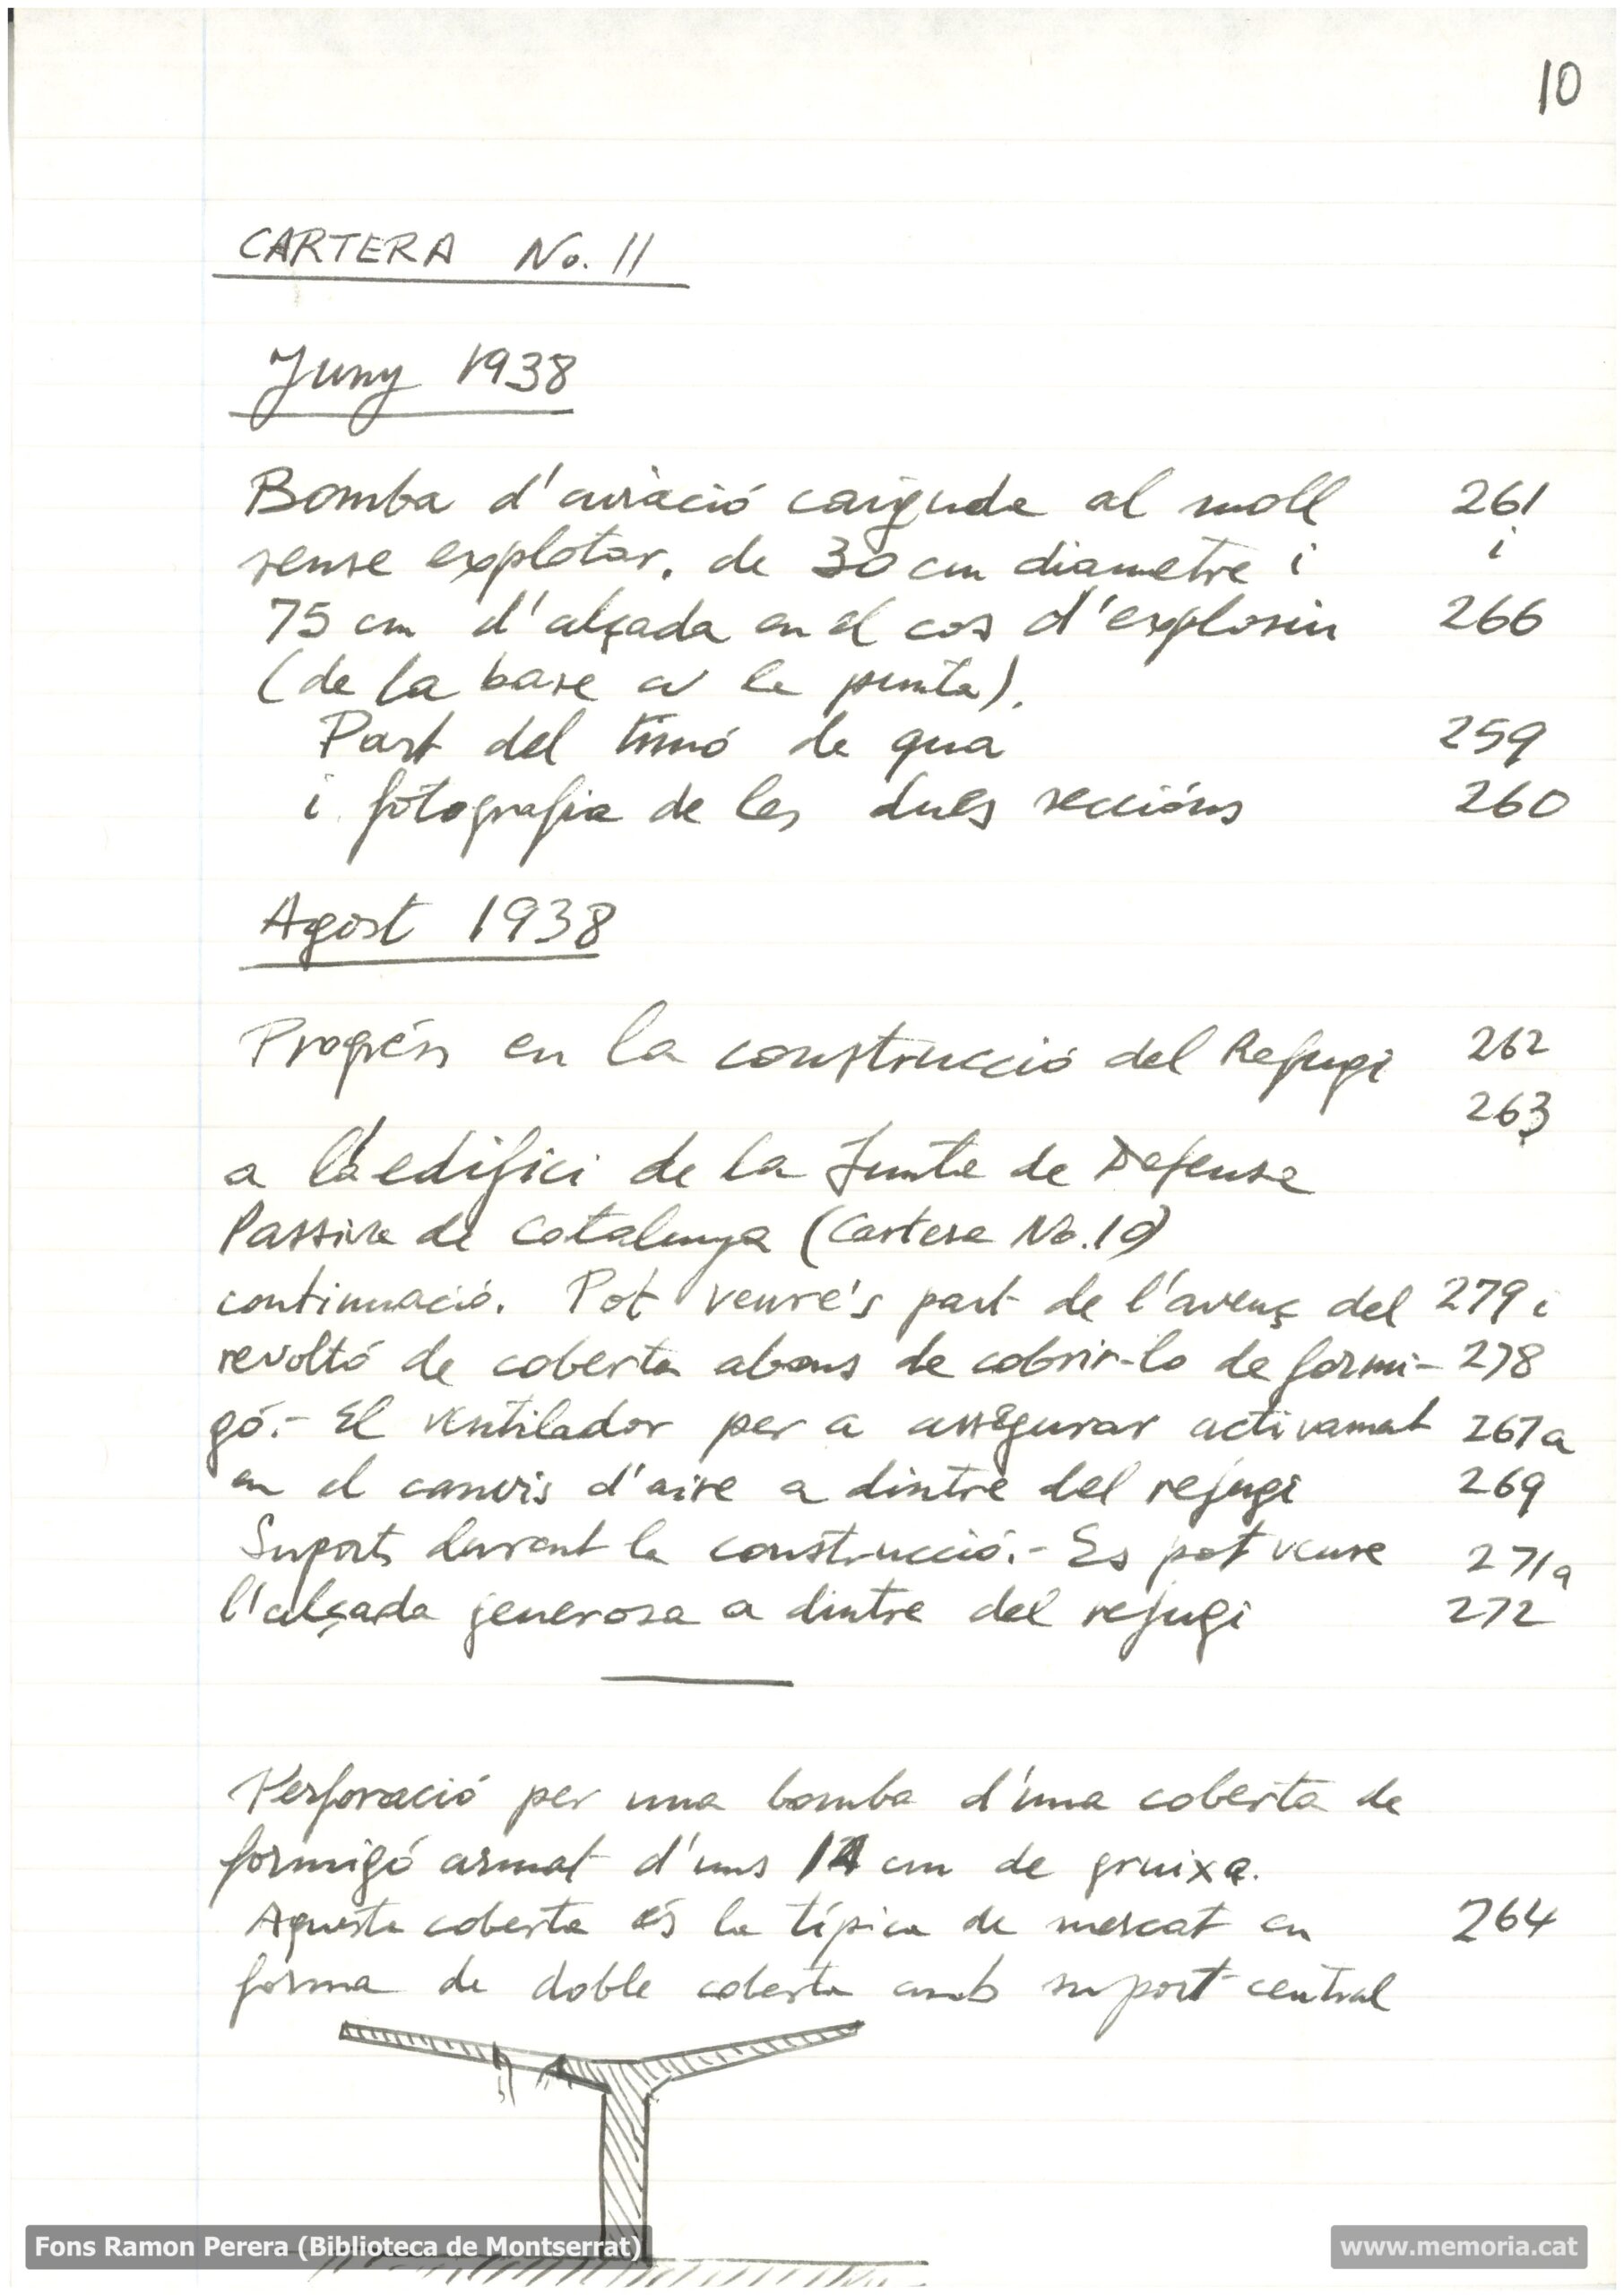 10
CARTERA No. 11
Juny 1938
Bomba d'aviació caiguda al moll 261
sense explotar. de 30 cm diametre i i
75 cm d'alçada en el cos d'explosiu 266
(de la base a la punta).
Part del timó de qua 259
i fotografia de les dues seccións 260
Agost 1938
Progrés en la construcció del Refugi 262
263
a l'edifici de la Junta de Defensa
Passiva de Catalunya (Cartera No. 10)
continuació. Pot veure's part de l'avenç del 279 i
revoltó de coberta abans de cobrir-lo de formi- 278
gó.- El ventilador per a assegurar activamat 267a
en el canvis d'aire a dintre del refugi 269
Suports durant la construcció.- Es pot veure 271a
l'alçada generosa a dintre del refugi 272
Perforació per una bomba d'una coberta de
formigó armat d'uns cm de gruixa.
Aquesta coberta és la típica de mercat en 264
forma de doble coberta amb suport central
Fons Ramon Perera (Biblioteca de Montserrat)
www.memoria.cat